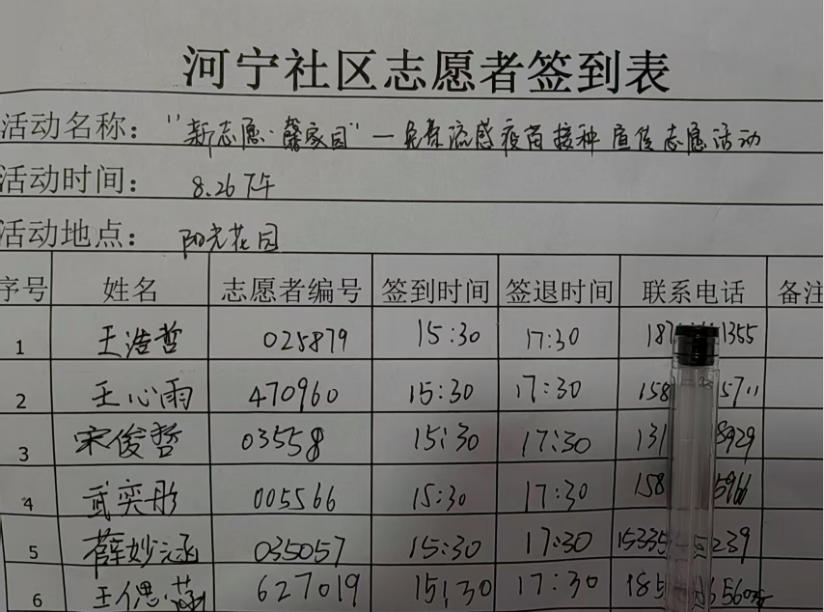 河宁社区志愿者签到表
活动名称：“新志愿·馨家园”—免费流感疫苗接种宣传志愿活动
活动时间： 8.26下午
活动地点： 阳光花园
序号 姓名 志愿者编号 签到时间 签退时间 联系电话 备注
1 王浩哲 025879 15:30 17:30 187 1355
2 王心雨 470960 15:30 17:30 158 5711
3 宋俊哲 03558 15:30 17:30 131 8929
4 武奕彤 005566 15:30 17:30 158 5966
5 薛妙涵 035057 15:30 17:30 15335 5239
6 王偲涵 627019 15:30 17:30 185 6560